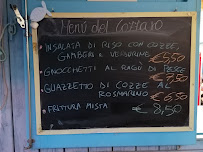 Menù del Corsaro
INSALATA DI RISO CON COZZE,
GAMBERI E VERDURINE
€5,50
GNOCCHETTI AL RAGÙ DI PESCE
€7,50
GUAZZETTO DI COZZE AL
ROSMARINO €6,50
FRITTURA MISTA € 8,50